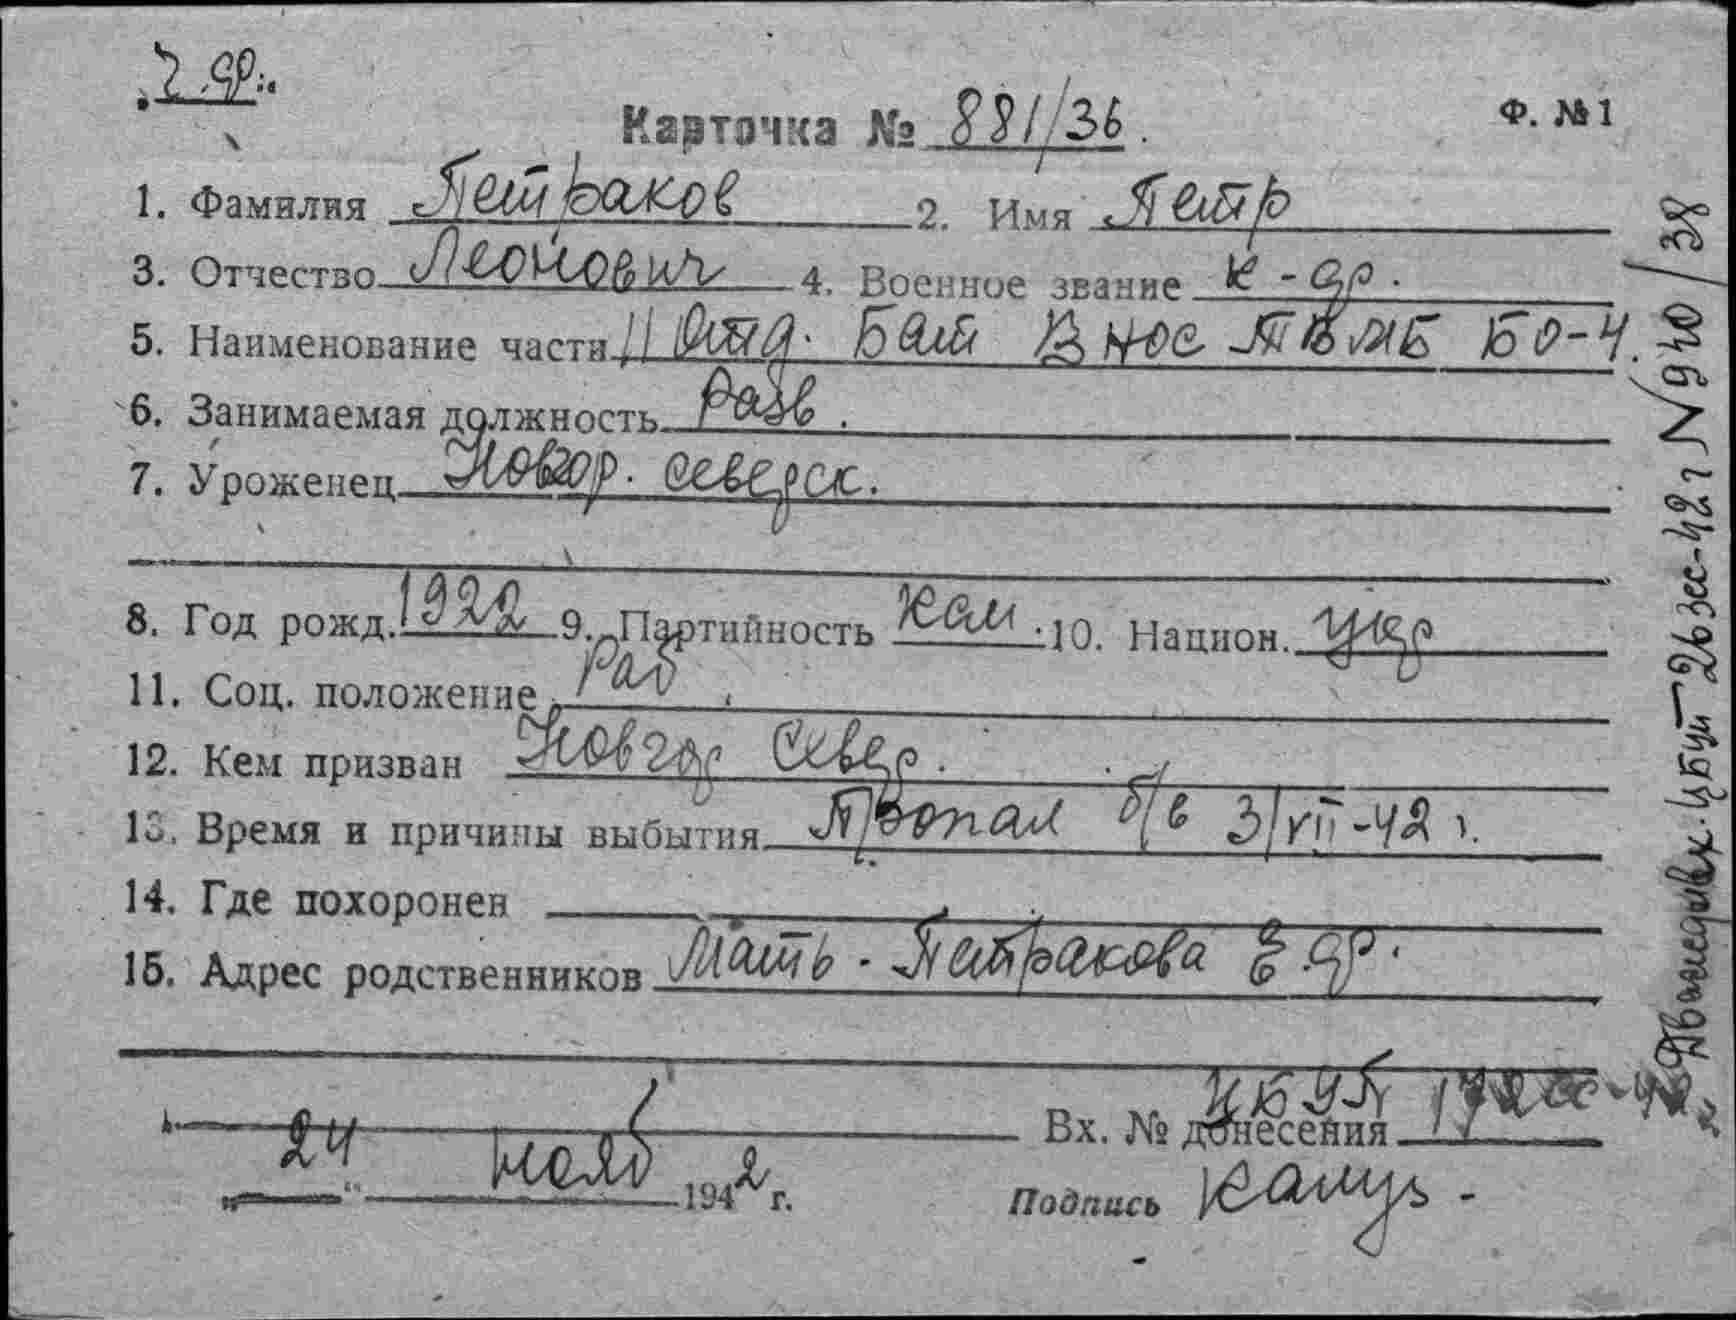 Ф. №1
Карточка № 881/36.
1. Фамилия Петраков 2. Имя Петр
3. Отчество Леонович 4. Военное звание к-ар.
5. Наименование части 11 Бат Внос БО-Ч.
6. Занимаемая должность Разв.
7. Уроженец Новгор. северск.
8. Год рожд. 1922 9. Партийность Кам. 10. Национ. укр
11. Соц. положение Раб
12. Кем призван Новгор Север.
13. Время и причины выбытия Пропал б/в 3/VII-42 г.
14. Где похоронен
15. Адрес родственников Мать - Петракова
Вх. № донесения
24 нояб 1942 г.
Подпись